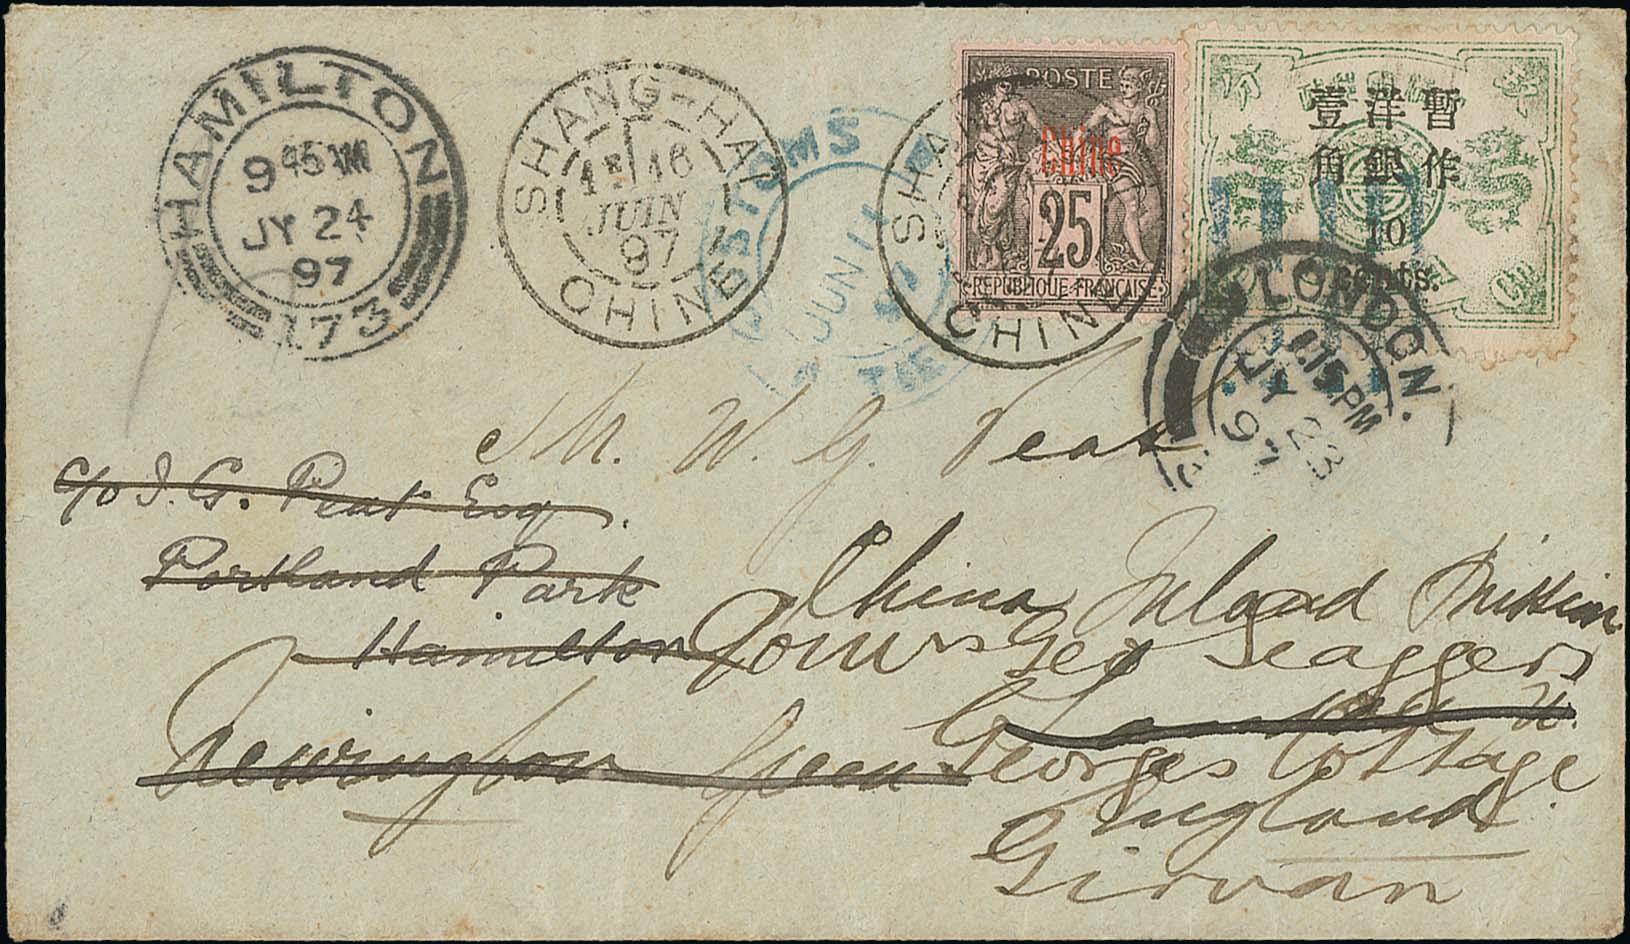 HAMILTON
9 45 AM
JY 24
97
173
SHANG-HAI
16
JUIN
97
CHINE
CUSTOMS
JUN 11
SHANG-HAI
CHINE
POSTE
Chine
25
REPUBLIQUE FRANÇAISE
暫作
洋銀
壹角
10
cents.
LONDON
1.15 PM
JY 23
97
Mr. W. G. Peat
c/o J. G. Peat Esq
Portland Park
Hamilton
China Inland Mission
Geo Seaggers
Newington Green
London N.
Georges Cottage
England
Girvan